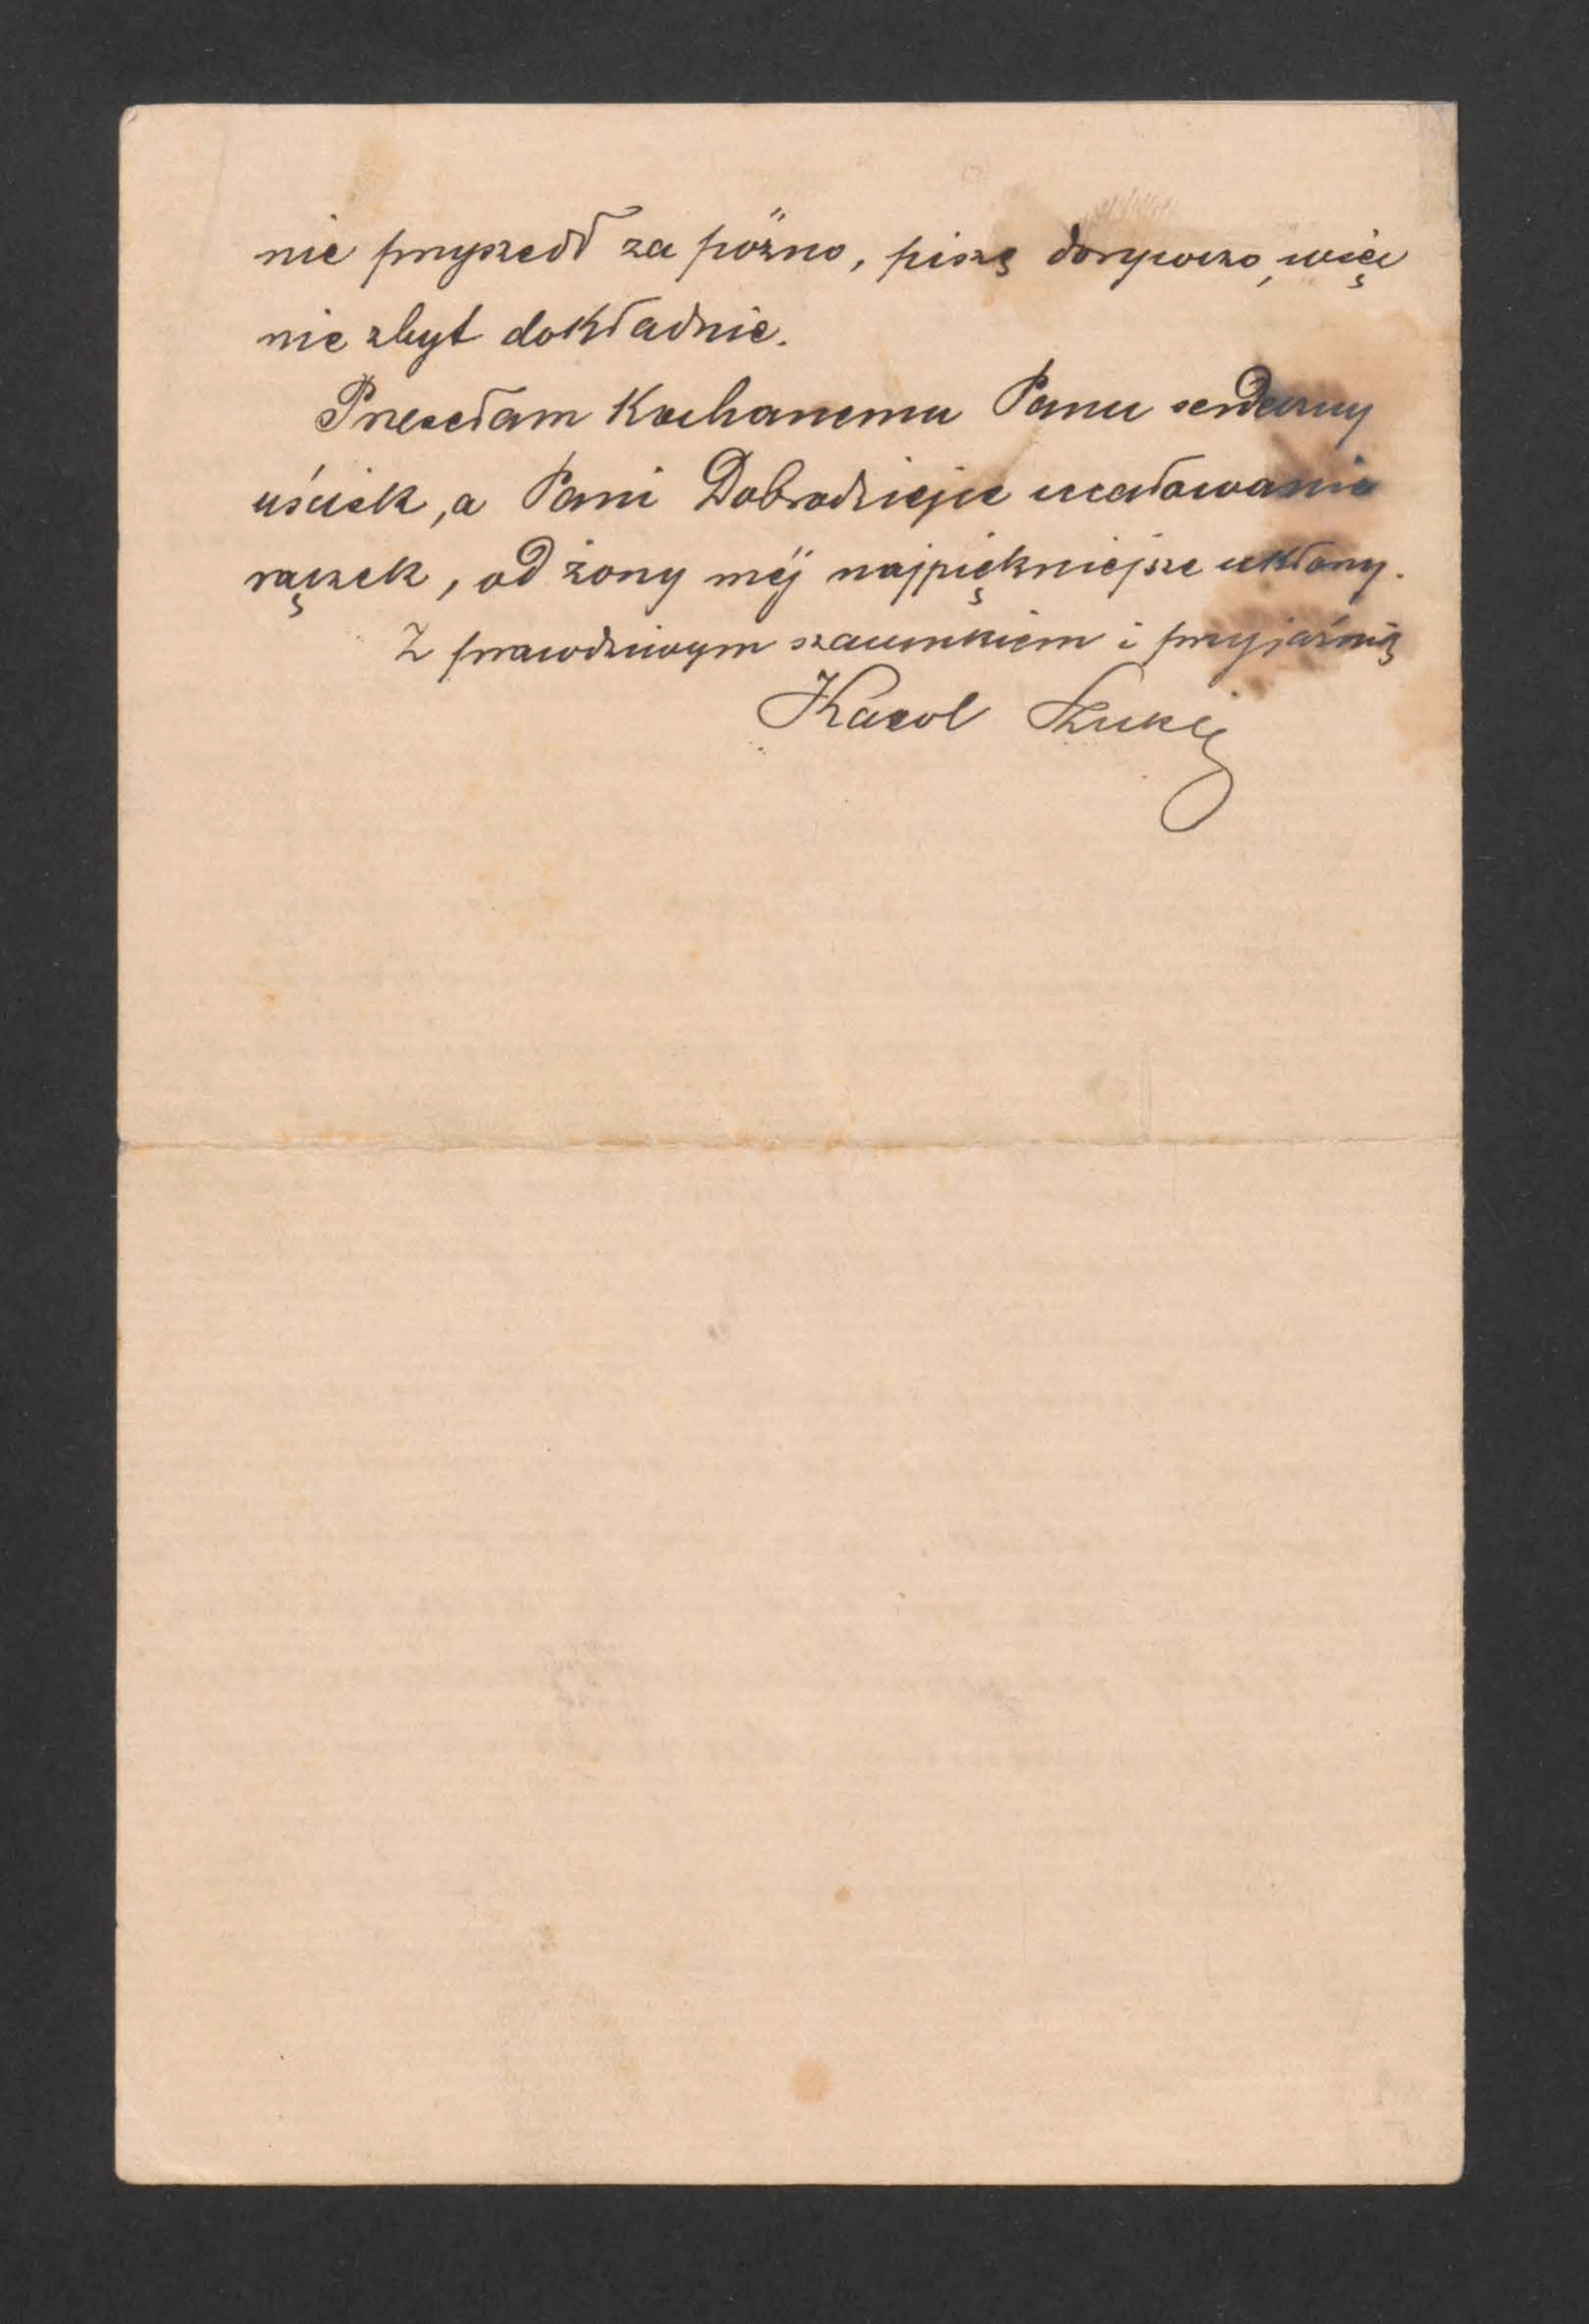 nie przyszedł za późno, piszę dorywczo, więc
nie zbyt dokładnie.
Przesełam Kochanemu Panu serdeczny
uścisk, a Pani Dobrodziejce ucałowania
rączek, od żony méj najpiękniejsze ukłony.
Z prawdziwym szacunkiem i przyjaźnią
Karol